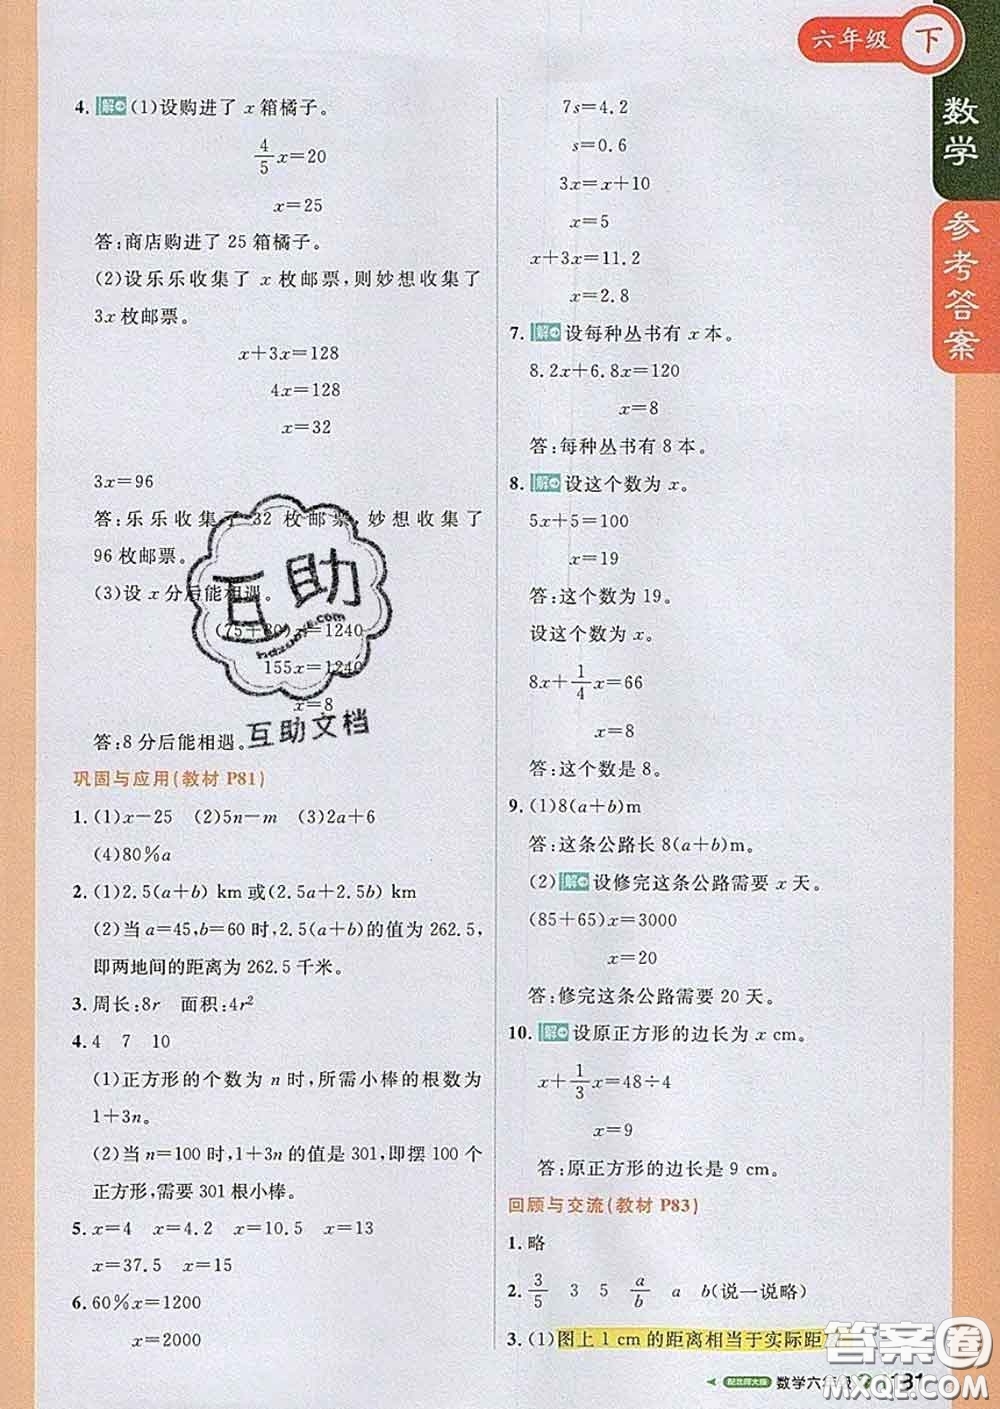 六年级 下
数学
参考答案
4. 解 (1)设购进了 x 箱橘子。
4/5 x=20
x=25
答:商店购进了 25 箱橘子。
(2)设乐乐收集了 x 枚邮票,则妙想收集了
3x 枚邮票。
x+3x=128
4x=128
x=32
3x=96
答:乐乐收集了 32 枚邮票,妙想收集了
96 枚邮票。
(3)设 x 分后能相遇。
(75+80)x=1240
155x=1240
x=8
答:8 分后能相遇。
巩固与应用(教材 P81)
1. (1)x-25 (2)5n-m (3)2a+6
(4)80%a
2. (1)2.5(a+b) km或(2.5a+2.5b) km
(2)当 a=45,b=60 时,2.5(a+b)的值为 262.5,
即两地间的距离为 262.5 千米。
3. 周长:8r 面积:4r²
4. 4 7 10
(1)正方形的个数为 n 时,所需小棒的根数为
1+3n。
(2)当 n=100 时,1+3n 的值是 301,即摆 100 个
正方形,需要 301 根小棒。
5. x=4 x=4.2 x=10.5 x=13
x=37.5 x=15
6. 60%x=1200
x=2000
7s=4.2
s=0.6
3x=x+10
x=5
x+3x=11.2
x=2.8
7. 解 设每种丛书有 x 本。
8.2x+6.8x=120
x=8
答:每种丛书有 8 本。
8. 解 设这个数为 x。
5x+5=100
x=19
答:这个数为 19。
设这个数为 x。
8x+1/4 x=66
x=8
答:这个数是 8。
9. (1)8(a+b)m
答:这条公路长 8(a+b)m。
(2) 解 设修完这条公路需要 x 天。
(85+65)x=3000
x=20
答:修完这条公路需要 20 天。
10. 解 设原正方形的边长为 x cm。
x+1/3 x=48÷4
x=9
答:原正方形的边长是 9 cm。
回顾与交流(教材 P83)
1. 略
2. 3/5 3 5 a/b a b(说一说略)
3. (1)图上 1 cm 的距离相当于实际距
配北师大版 数学六年级 181
互助
互助文档
答案圈
MXQE.COM